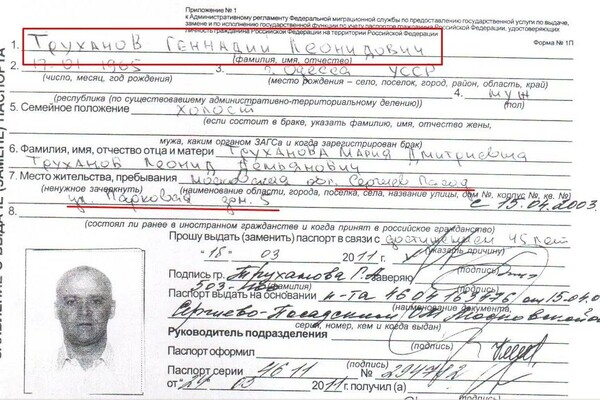 Приложение № 1
к Административному регламенту Федеральной миграционной службы по предоставлению государственной услуги по выдаче,
замене и по исполнению государственной функции по учету паспортов гражданина Российской Федерации, удостоверяющих
личность гражданина Российской Федерации на территории Российской Федерации
Форма № 1П
1. Труханов Геннадий Леонидович
(фамилия, имя, отчество)
2. 17.01.1965 3. г. Одесса УССР
(число, месяц, год рождения) (место рождения – село, поселок, город, район, область, край)
4. муж
(республика (по существовавшему административно-территориальному делению)) (пол)
5. Семейное положение холост
(если состоит в браке, указать фамилию, имя, отчество жены,
мужа, каким органом ЗАГСа и когда зарегистрирован брак)
6. Фамилия, имя, отчество отца и матери Труханова Мария Дмитриевна
Труханов Леонид Демьянович
7. Место жительства, пребывания Московская обл. Сергиев Посад
(ненужное зачеркнуть) (наименование области, города, поселка, села, название улицы, дом №, корпус №, кв. №)
ул. Парковая дом. 5 с 15.04.2003
8.
(состоял ли ранее в иностранном гражданстве и когда принят в российское гражданство)
Прошу выдать (заменить) паспорт в связи с достижением 45 лет
(указать причину)
"18" 03 2011 г.
Подпись гр. Труханова Г.Л. заверяю
(подпись)
Паспорт выдать на основании п-та 4604163476 от 15.04.0
Сергиево-Посадским Московской
серия, номер, кем и когда выдан)
Руководитель подразделения
(подпись)
Паспорт оформил
(подпись)
Паспорт серии 4611 № 2947
от "24" 03 2011 г. получил (а)
(подпись)